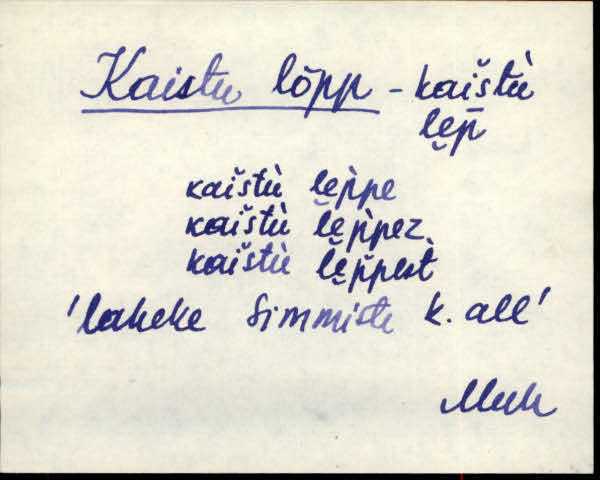 Kaistu lõpp - kaištù
l̮e̮p̄
kaištù l̮e̮p̀pe
kaištù l̮e̮p̀pez
kaištù l̮e̮p̀pest̀
'laheke Simmiste k. all'
Muh